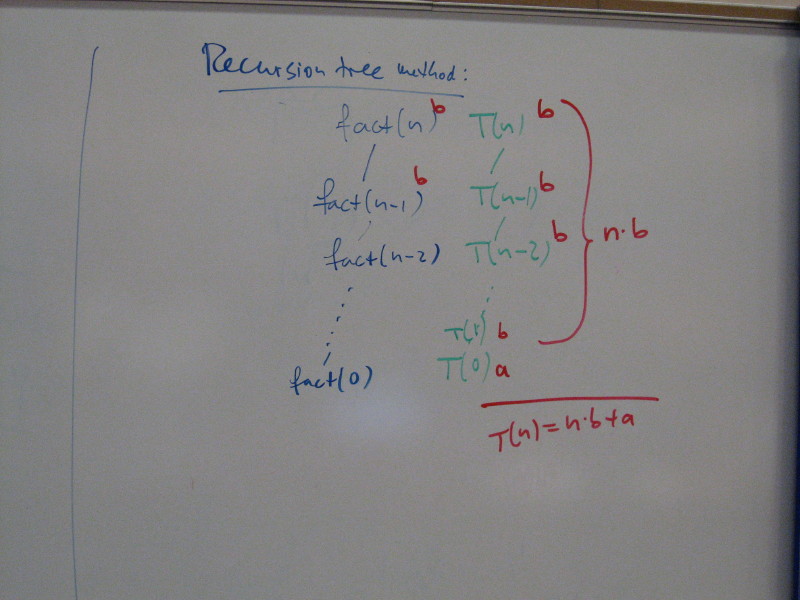 Recursion tree method:
fact(n) b T(n) b
fact(n-1) b T(n-1) b
fact(n-2) T(n-2) b n·b
T(1) b
fact(0) T(0) a
T(n)=n·b+a